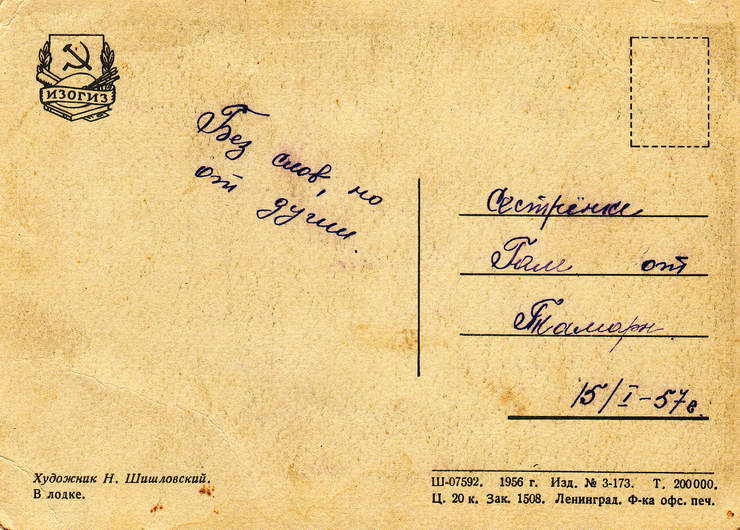 ИЗОГИЗ
Без слов, но
от души.
Сестрёнке
Гале от
Тамары.
15/I-57г.
Художник Н. Шишловский.
В лодке.
Ш-07592. 1956 г. Изд. № 3-173. Т. 200000.
Ц. 20 к. Зак. 1508. Ленинград. Ф-ка офс. печ.